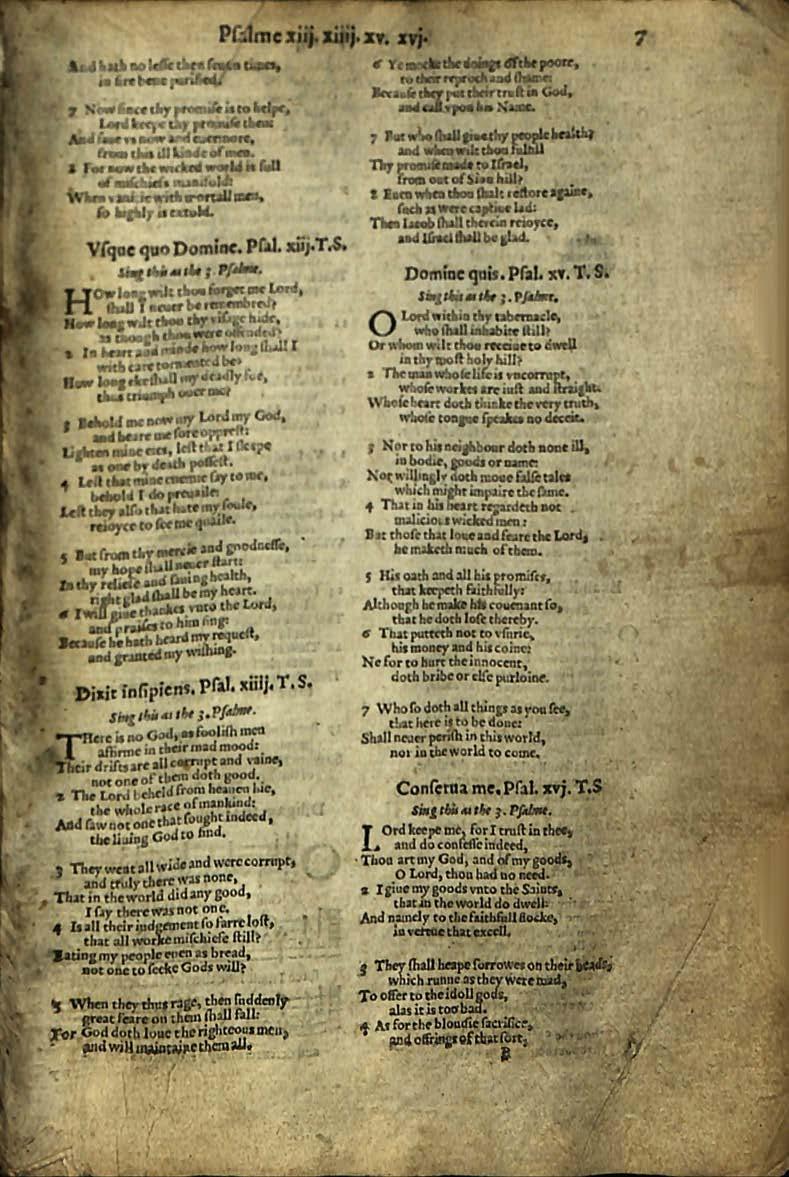 Pſalme xiij. xiiij. xv. xvj.
7
And hath no leſſe then ſeuen times,
in fire bene purified.
7 Now ſince thy promiſe is to helpe,
Lord keepe thy promiſe then:
And ſaue vs now and euermore,
from this ill kinde of men.
8 For now the wicked world is full
of miſchiefs manifold:
When vanitie with mortall men,
ſo highly is extold.
Vſque quo Domine. Pſal. xiij. T. S.
Sing this as the 3. Pſalme.
HOw long wilt thou forget me Lord,
ſhall I neuer be remembred?
How long wilt thou thy viſage hide,
as though thou were offended?
2 In heart and minde how long ſhall I
with care tormented be?
How long eke ſhall my deadly foe,
thus triumph ouer me?
3 Behold me now my Lord my God,
and heare me ſore oppreſt:
Lighten mine eies, leſt that I ſleepe
as one by death poſſeſt.
4 Leſt that mine enemie ſay to me,
behold I do preuaile:
Leſt they alſo that hate my ſoule,
reioyce to ſee me quaile.
5 But from thy mercie and goodneſſe,
my hope ſhall neuer ſtart:
In thy reliefe and ſauing health,
right glad ſhall be my heart.
6 I will giue thankes vnto the Lord,
and praiſes to him ſing:
Becauſe he hath heard my requeſt,
and granted my wiſhing.
Dixit inſipiens. Pſal. xiiij. T. S.
Sing this as the 3. Pſalme.
THere is no God, as fooliſh men
affirme in their mad mood:
Their drifts are all corrupt and vaine,
not one of them doth good.
2 The Lord beheld from heauen hie,
the whole race of mankind:
And ſaw not one that ſought indeed,
the liuing God to find.
3 They went all wide and were corrupt,
and truly there was none,
That in the world did any good,
I ſay there was not one.
4 Is all their iudgement ſo farre loſt,
that all worke miſchiefe ſtill?
Eating my people euen as bread,
not one to ſeeke Gods will?
5 When they thus rage, then ſuddenly
great feare on them ſhall fall:
For God doth loue the righteous men,
and will maintaine them all.
6 Ye mocke the doings of the poore,
to their reproch and ſhame:
Becauſe they put their truſt in God,
and call vpon his Name.
7 But who ſhall giue thy people health?
and when wilt thou fulfill
Thy promiſe made to Iſrael,
from out of Sion hill?
8 Euen when thou ſhalt reſtore againe,
ſuch as were captiue lad:
Then Iacob ſhall therein reioyce,
and Iſrael ſhall be glad.
Domine quis. Pſal. xv. T. S.
Sing this as the 3. Pſalme.
O Lord within thy tabernacle,
who ſhall inhabite ſtill?
Or whom wilt thou receiue to dwell
in thy moſt holy hill?
2 The man whoſe life is vncorrupt,
whoſe workes are iuſt and ſtraight.
Whoſe heart doth thinke the very truth,
whoſe tongue ſpeakes no deceit.
3 Nor to his neighbour doth none ill,
in bodie, goods or name:
Nor willingly doth moue falſe tales
which might impaire the ſame.
4 That in his heart regardeth not
malicious wicked men:
But thoſe that loue and feare the Lord,
he maketh much of them.
5 His oath and all his promiſes,
that keepeth faithfully:
Although he make his couenant ſo,
that he doth loſe thereby.
6 That putteth not to vſurie,
his money and his coine:
Ne for to hurt the innocent,
doth bribe or elſe purloine.
7 Who ſo doth all things as you ſee,
that here is to be done:
Shall neuer periſh in this world,
nor in the world to come.
Conſerua me. Pſal. xvj. T. S
Sing this as the 3. Pſalme.
LOrd keepe me, for I truſt in thee,
and do confeſſe indeed,
Thou art my God, and of my goods,
O Lord, thou had no need.
2 I giue my goods vnto the Saints,
that in the world do dwell:
And namely to the faithfull flocke,
in vertue that excell.
3 They ſhall heape ſorrowes on their heads,
which runne as they were mad,
To offer to the idoll gods,
alas it is too bad.
4 As for the bloudie ſacrifice,
and offrings of that ſort,
B